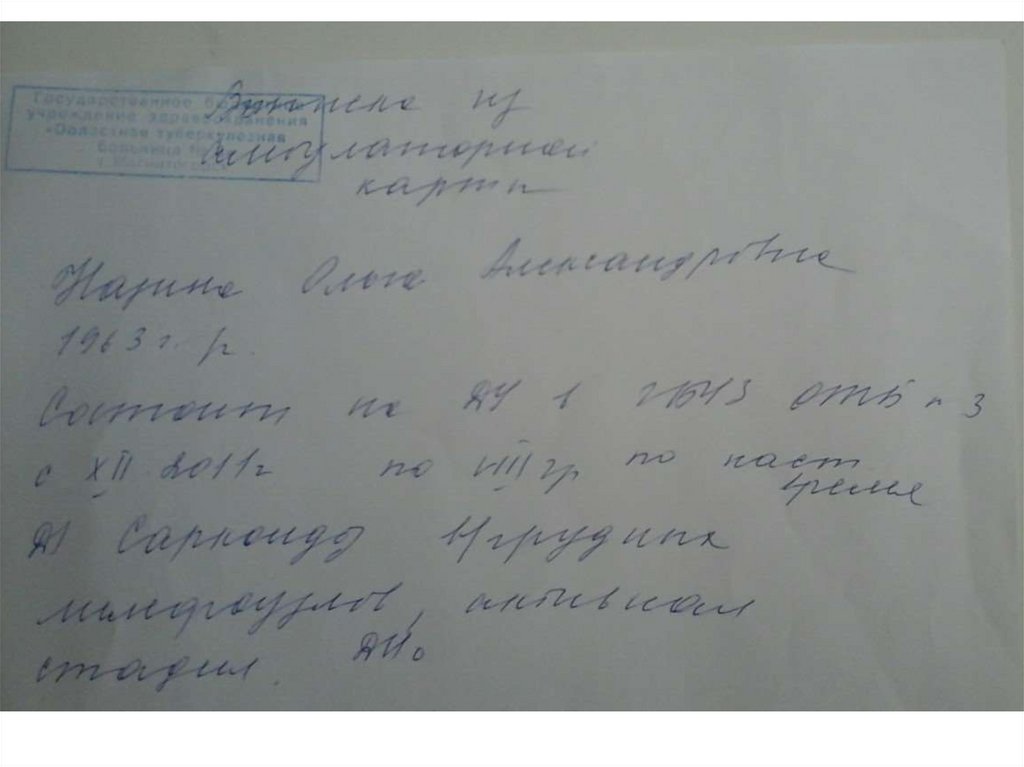 Государственное б
учреждение здравоохранения
«Областная туберкулезная
больница №
Выписка из
амбулаторной
карты
Ольга Александровна
1963 г. р.
Состоит на ДУ в ГБУЗ ОТБ n 3
с XII 2011г по VIII гр по наст
время
Д/ Саркоидоз в/грудных
лимфоузлов, активная
стадия. ДН0